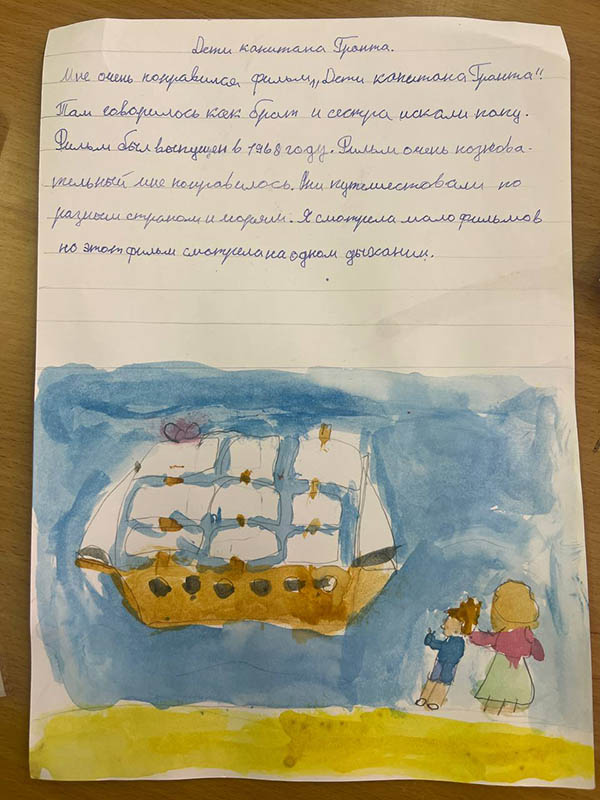 Дети капитана Гранта.
Мне очень понравился фильм „Дети капитана Гранта".
Там говорилось как брат и сестра искали папу.
Фильм был выпущен в 1968 году. Фильм очень познова-
тельный мне понравилось. Они путешествовали по
разным странам и морям. Я смотрела мало фильмов
но этот фильм смотрела на одном дыхании.